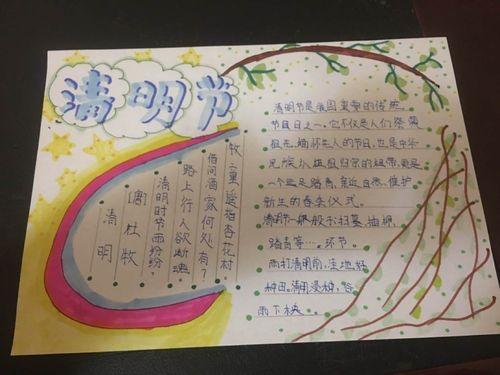 清明节
清明
[唐]杜牧
清明时节雨纷纷,
路上行人欲断魂。
借问酒家何处有?
牧童遥指杏花村.
清明节是我国重要的传统
节日日之一,它不仅是人们祭奠
祖先、缅怀先人的节日,也是中华
民族认祖归宗的纽带,更是
一个远足踏青、亲近自然、催护
新生的春季仪式。
清明一般扫墓、插柳、
踏青等…。环节。
雨打清明前,洼地好
种田。清明浸种,谷
雨下秧。